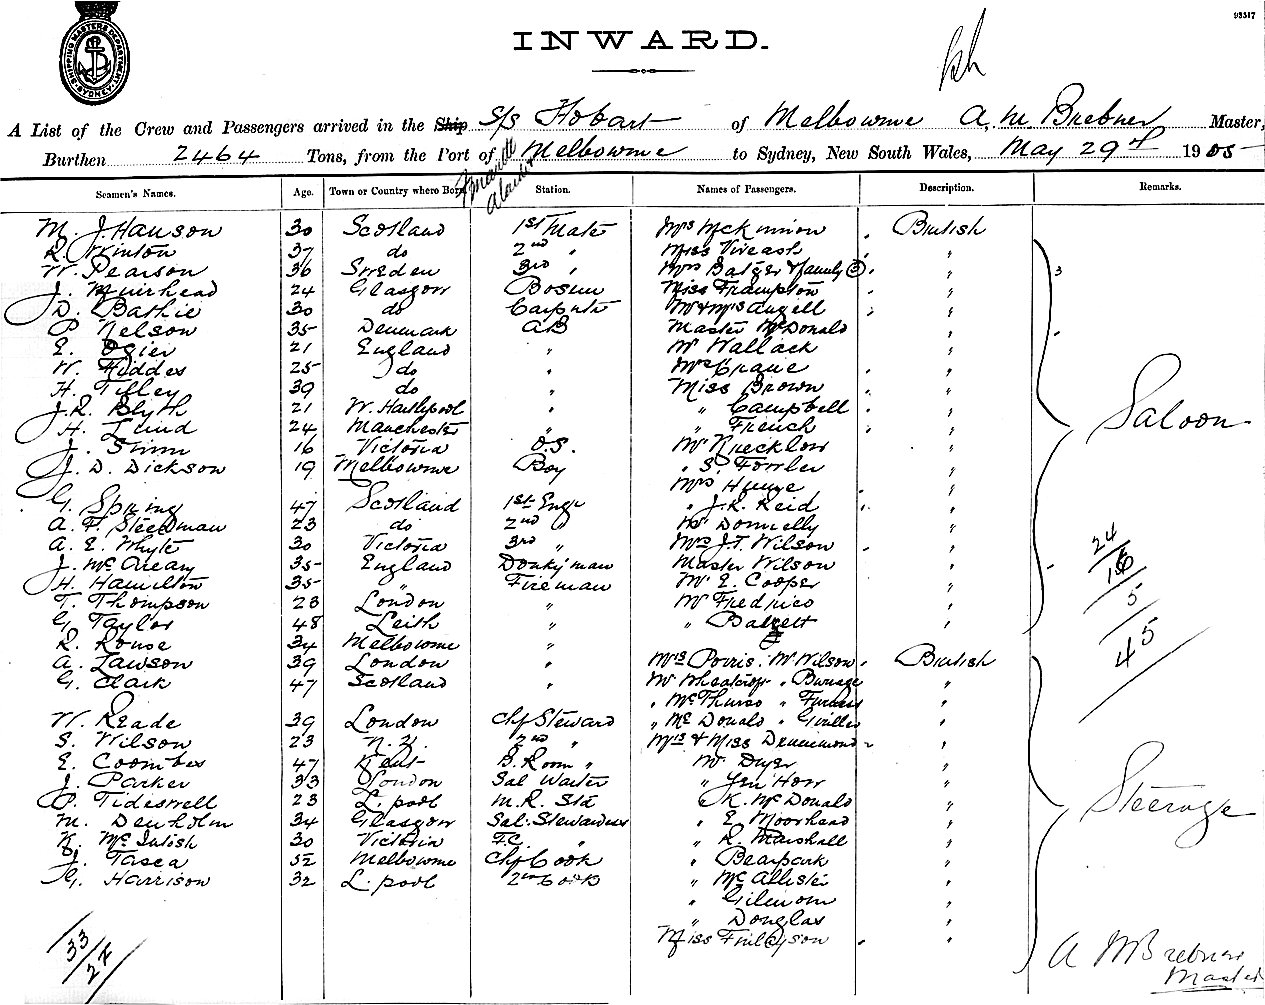 93517
SHIPPING MASTERS DEPARTMENT SYDNEY
INWARD.
A List of the Crew and Passengers arrived in the Ship S/S Hobart of Melbourne A. M. Brebner Master,
Burthen 2464 Tons, from the Port of Melbourne to Sydney, New South Wales, May 29th 1905
Seamen's Names. Age. Town or Country where Born Station. Names of Passengers. Description. Remarks.
M. J. Hanson 30 Scotland 1st Mate Mrs McKinnion British
R. Winton 37 do 2nd " Miss Vireash "
W. Pearson 36 Sweden 3rd " Mrs Batger & family (3) " 3
J. Muirhead 24 Glasgow Bosun Miss Frampton "
D. Bathie 30 do Carpntr Mr & Mrs Angell "
P. Nelson 35 Denmark AB Master McDonald "
E. Ogier 21 England " Mr Wallack "
W. Fiddes 25 do " Mrs Crane "
H. Tilley 39 do " Miss Brown "
J. R. Blyth 21 W. Hartlepool " " Campbell "
H. Lund 24 Manchester " " French "
J. Stinn 16 Victoria O.S. Mr Kuecklow "
J. D. Dickson 19 Melbourne Boy " S. Fowler "
Mrs Hume "
G. Spring 47 Scotland 1st Engr " J. R. Reid "
A. F. Steedman 23 do 2nd " Mr Donnelly "
A. E. Whyte 30 Victoria 3rd " Mrs J. T. Wilson "
J. McCreary 35 England Donkyman Master Wilson "
H. Hamilton 35 " Fireman Mr E. Cooper "
T. Thompson 23 London " Mr Fredrico "
G. Taylor 48 Leith " " "
R. Rouse 34 Melbourne "
A. Lawson 39 London " Mrs Porris. Mr Wilson British
G. Clark 47 Scotland " Mr Wheatcrop " Burnage "
" McThurso " Furness "
W. Reade 39 London Chf Steward " McDonald " Gwilles "
S. Wilson 23 N.Z. 2nd " Mrs & Miss Drummond "
E. Coombes 47 Kent B. Room " Mr Dyer "
J. Parker 33 London Sal Waiter " Jem Horr "
P. Tideswell 23 L.pool M.R. Std " K. McDonald "
M. Denholm 34 Glasgow Sal: Stewardess " E Moorhead "
K. McIntish 30 Victoria F.C. " " R. Marshall "
J. Tasca 52 Melbourne Chf Cook " Bearpark "
G. Harrison 32 L.pool 2nd Cook " McAllister "
" Gilmom "
" Douglas "
Miss Finlayson "
Saloon
24
16
5
45
Steerage
33/24
A M Brebner
Master